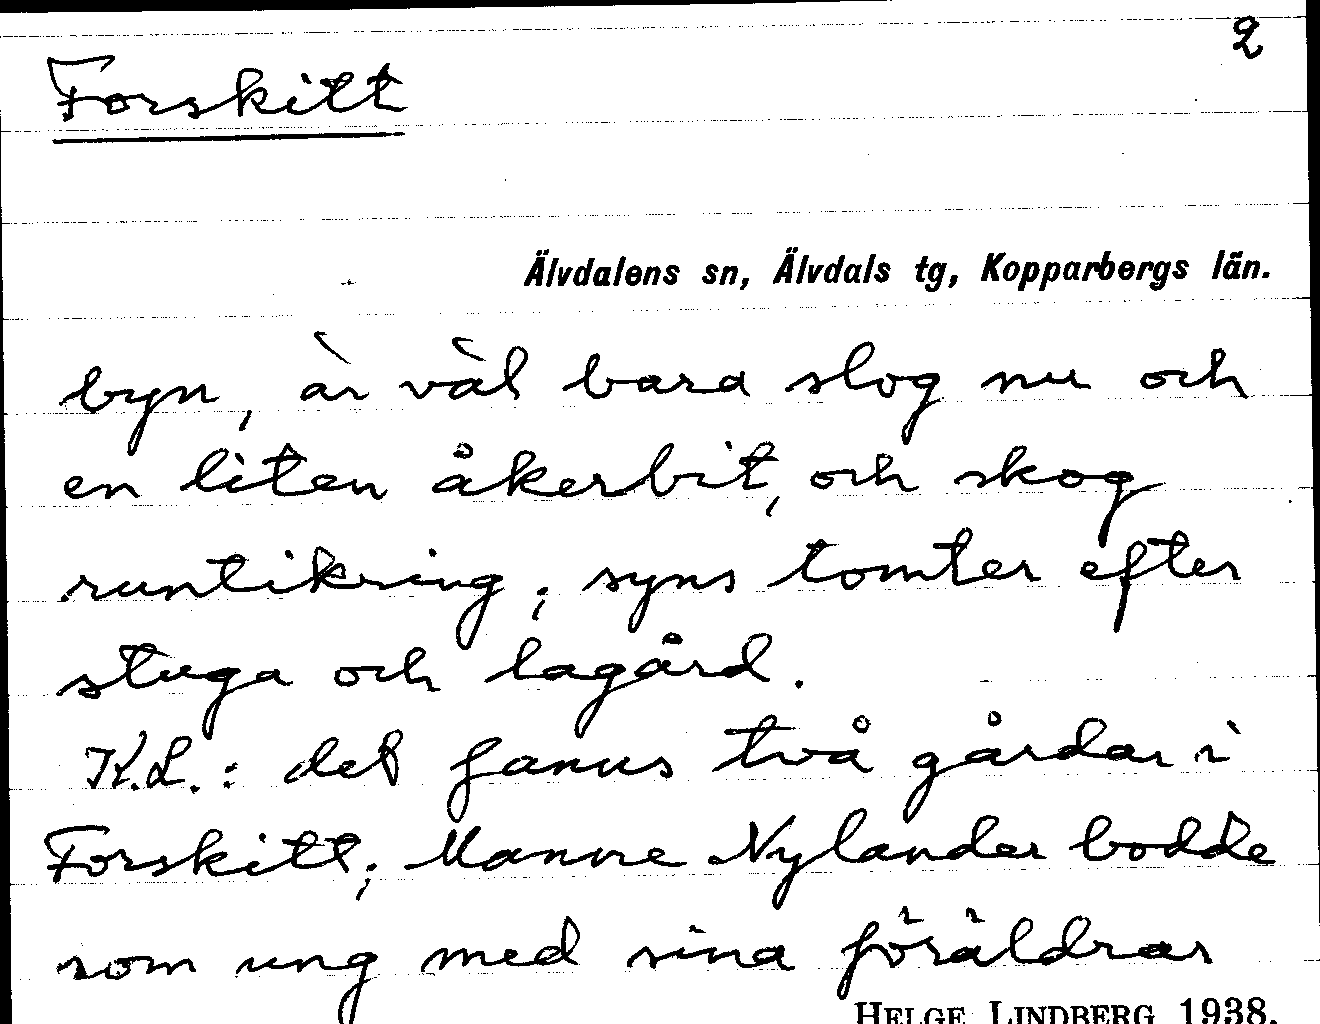 2
Forskitt
Älvdalens sn, Älvdals tg, Kopparbergs län.
byn, är väl bara slog nu och
en liten åkerbit, och skog
runtikring; syns tomter efter
stuga och lagård.
K.L.: det fanns två gårdar i
Forskitt; Manne Nylander bodde
som ung med sina föräldrar
HELGE LINDBERG 1938.